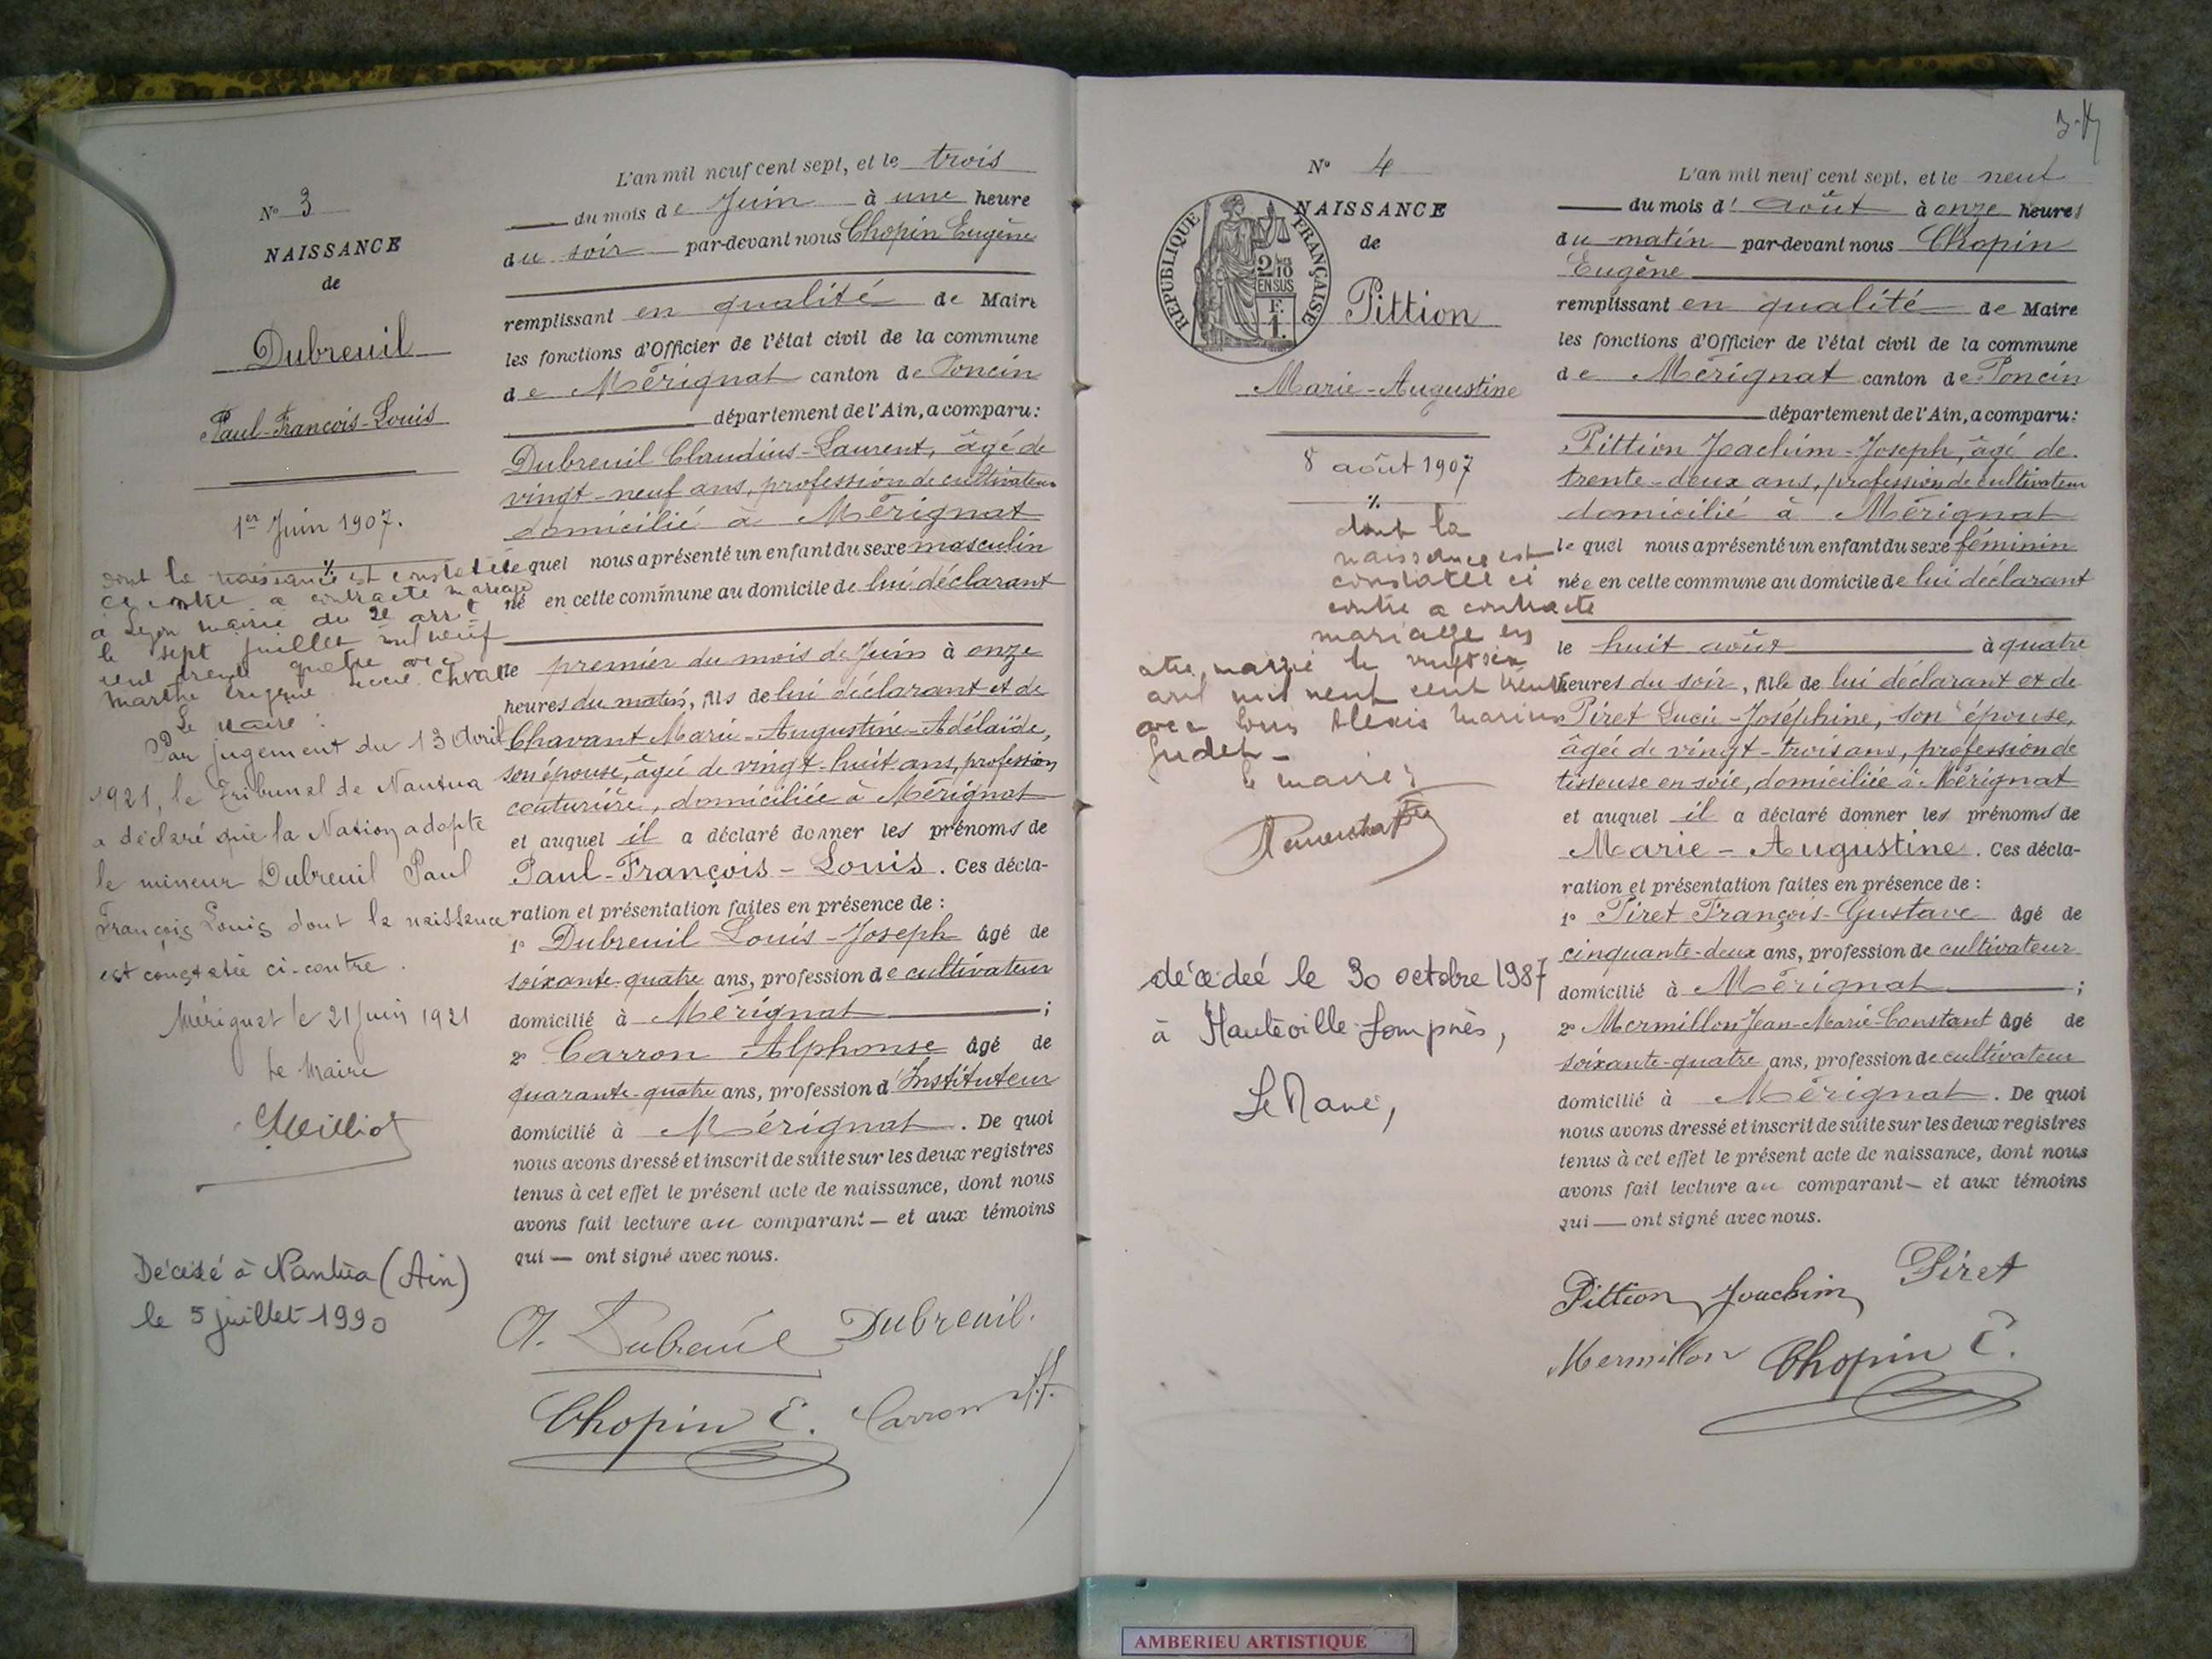 N° 3
NAISSANCE
de
Dubreuil
Paul-François-Louis
1er Juin 1907.
dont la naissance est constatée
ci contre a contracté mariage
à Lyon mairie du 2e arrt
le sept juillet mil neuf
cent trente quatre avec
Marthe
Le maire :
Par jugement du 13 Avril
1921, le Tribunal de Nantua
a déclaré que la Nation adopte
le mineur Dubreuil Paul
François Louis dont la naissance
est constatée ci-contre.
Mérignat le 21 Juin 1921
Le Maire
Milliot
Décédé à Nantua (Ain)
le 5 juillet 1990
L'an mil neuf cent sept, et le trois
du mois de Juin à une heure
du soir par-devant nous Chopin Eugène
remplissant en qualité de Maire
les fonctions d'Officier de l'état civil de la commune
de Mérignat canton de Poncin
département de l'Ain, a comparu :
Dubreuil Claudius-Laurent, âgé de
vingt-neuf ans, profession de cultivateur
domicilié à Mérignat
lequel nous a présenté un enfant du sexe masculin
né en cette commune au domicile de lui déclarant
le premier du mois de Juin à onze
heures du matin, fils de lui déclarant et de
Chavant Marie-Augustine-Adélaïde,
son épouse, âgée de vingt-huit ans, profession
couturière, domiciliée à Mérignat
et auquel il a déclaré donner les prénoms de
Paul-François-Louis. Ces décla-
ration et présentation faites en présence de :
1° Dubreuil Louis-Joseph âgé de
soixante-quatre ans, profession de cultivateur
domicilié à Mérignat ;
2° Carron Alphonse âgé de
quarante-quatre ans, profession d'Instituteur
domicilié à Mérignat. De quoi
nous avons dressé et inscrit de suite sur les deux registres
tenus à cet effet le présent acte de naissance, dont nous
avons fait lecture au comparant — et aux témoins
qui — ont signé avec nous.
Dubreuil Dubreuil.
Chopin E. Carron
N° 4
NAISSANCE
de
RÉPUBLIQUE FRANÇAISE
2/10
EN SUS
F.
1.
Pittion
Marie-Augustine
8 août 1907
dont la
naissance est
constatée ci
contre a contracté
mariage en
mairie le vingt six
avril mil neuf cent trente
avec Louis Alexis Marius
Gudet
le maire :
décédée le 30 octobre 1987
à Hauteville-Lompnès,
Le Maire,
L'an mil neuf cent sept, et le neuf
du mois d'août à onze heures
du matin par-devant nous Chopin
Eugène
remplissant en qualité de Maire
les fonctions d'Officier de l'état civil de la commune
de Mérignat canton de Poncin
département de l'Ain, a comparu :
Pittion Joachim-Joseph, âgé de
trente-deux ans, profession de cultivateur
domicilié à Mérignat
lequel nous a présenté un enfant du sexe féminin
née en cette commune au domicile de lui déclarant
le huit août à quatre
heures du soir, fille de lui déclarant et de
Piret Lucie-Joséphine, son épouse,
âgée de vingt-trois ans, profession de
tisseuse en soie, domiciliée à Mérignat
et auquel il a déclaré donner les prénoms de
Marie-Augustine. Ces décla-
ration et présentation faites en présence de :
1° Piret François-Gustave âgé de
cinquante-deux ans, profession de cultivateur
domicilié à Mérignat ;
2° Mermillon Jean-Marie-Constant âgé de
soixante-quatre ans, profession de cultivateur
domicilié à Mérignat. De quoi
nous avons dressé et inscrit de suite sur les deux registres
tenus à cet effet le présent acte de naissance, dont nous
avons fait lecture au comparant — et aux témoins
qui — ont signé avec nous.
Pittion Joachim Piret
Mermillon Chopin E.
AMBERIEU ARTISTIQUE